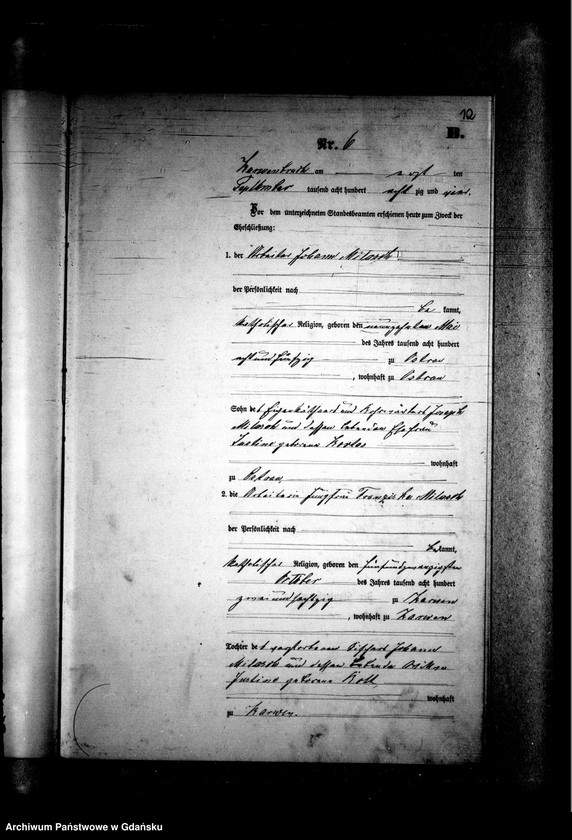 12
B.
Nr. 6
Karwenbruch am ten
September tausend acht hundert acht zig und vier.
Vor dem unterzeichneten Standesbeamten erschienen heute zum Zweck der
Eheschließung:
1. der Arbeiter Johann
der Persönlichkeit nach
be kannt,
katholischer Religion, geboren den neunzehnten Mai
des Jahres tausend acht hundert
acht und fünfzig zu Ostrau
, wohnhaft zu Ostrau
Sohn des und Joseph
und dessen lebenden Ehefrau
Justine geborene
wohnhaft
zu Ostrau
2. die Arbeiterin Jungfrau Franziska
der Persönlichkeit nach
be kannt,
katholischer Religion, geboren den fünfundzwanzigsten
October des Jahres tausend acht hundert
zwei und sechszig zu Karwen
, wohnhaft zu Karwen
Tochter des verstorbenen Johann
und dessen lebenden
Justine geborene
wohnhaft
zu Karwen.
Archiwum Państwowe w Gdańsku